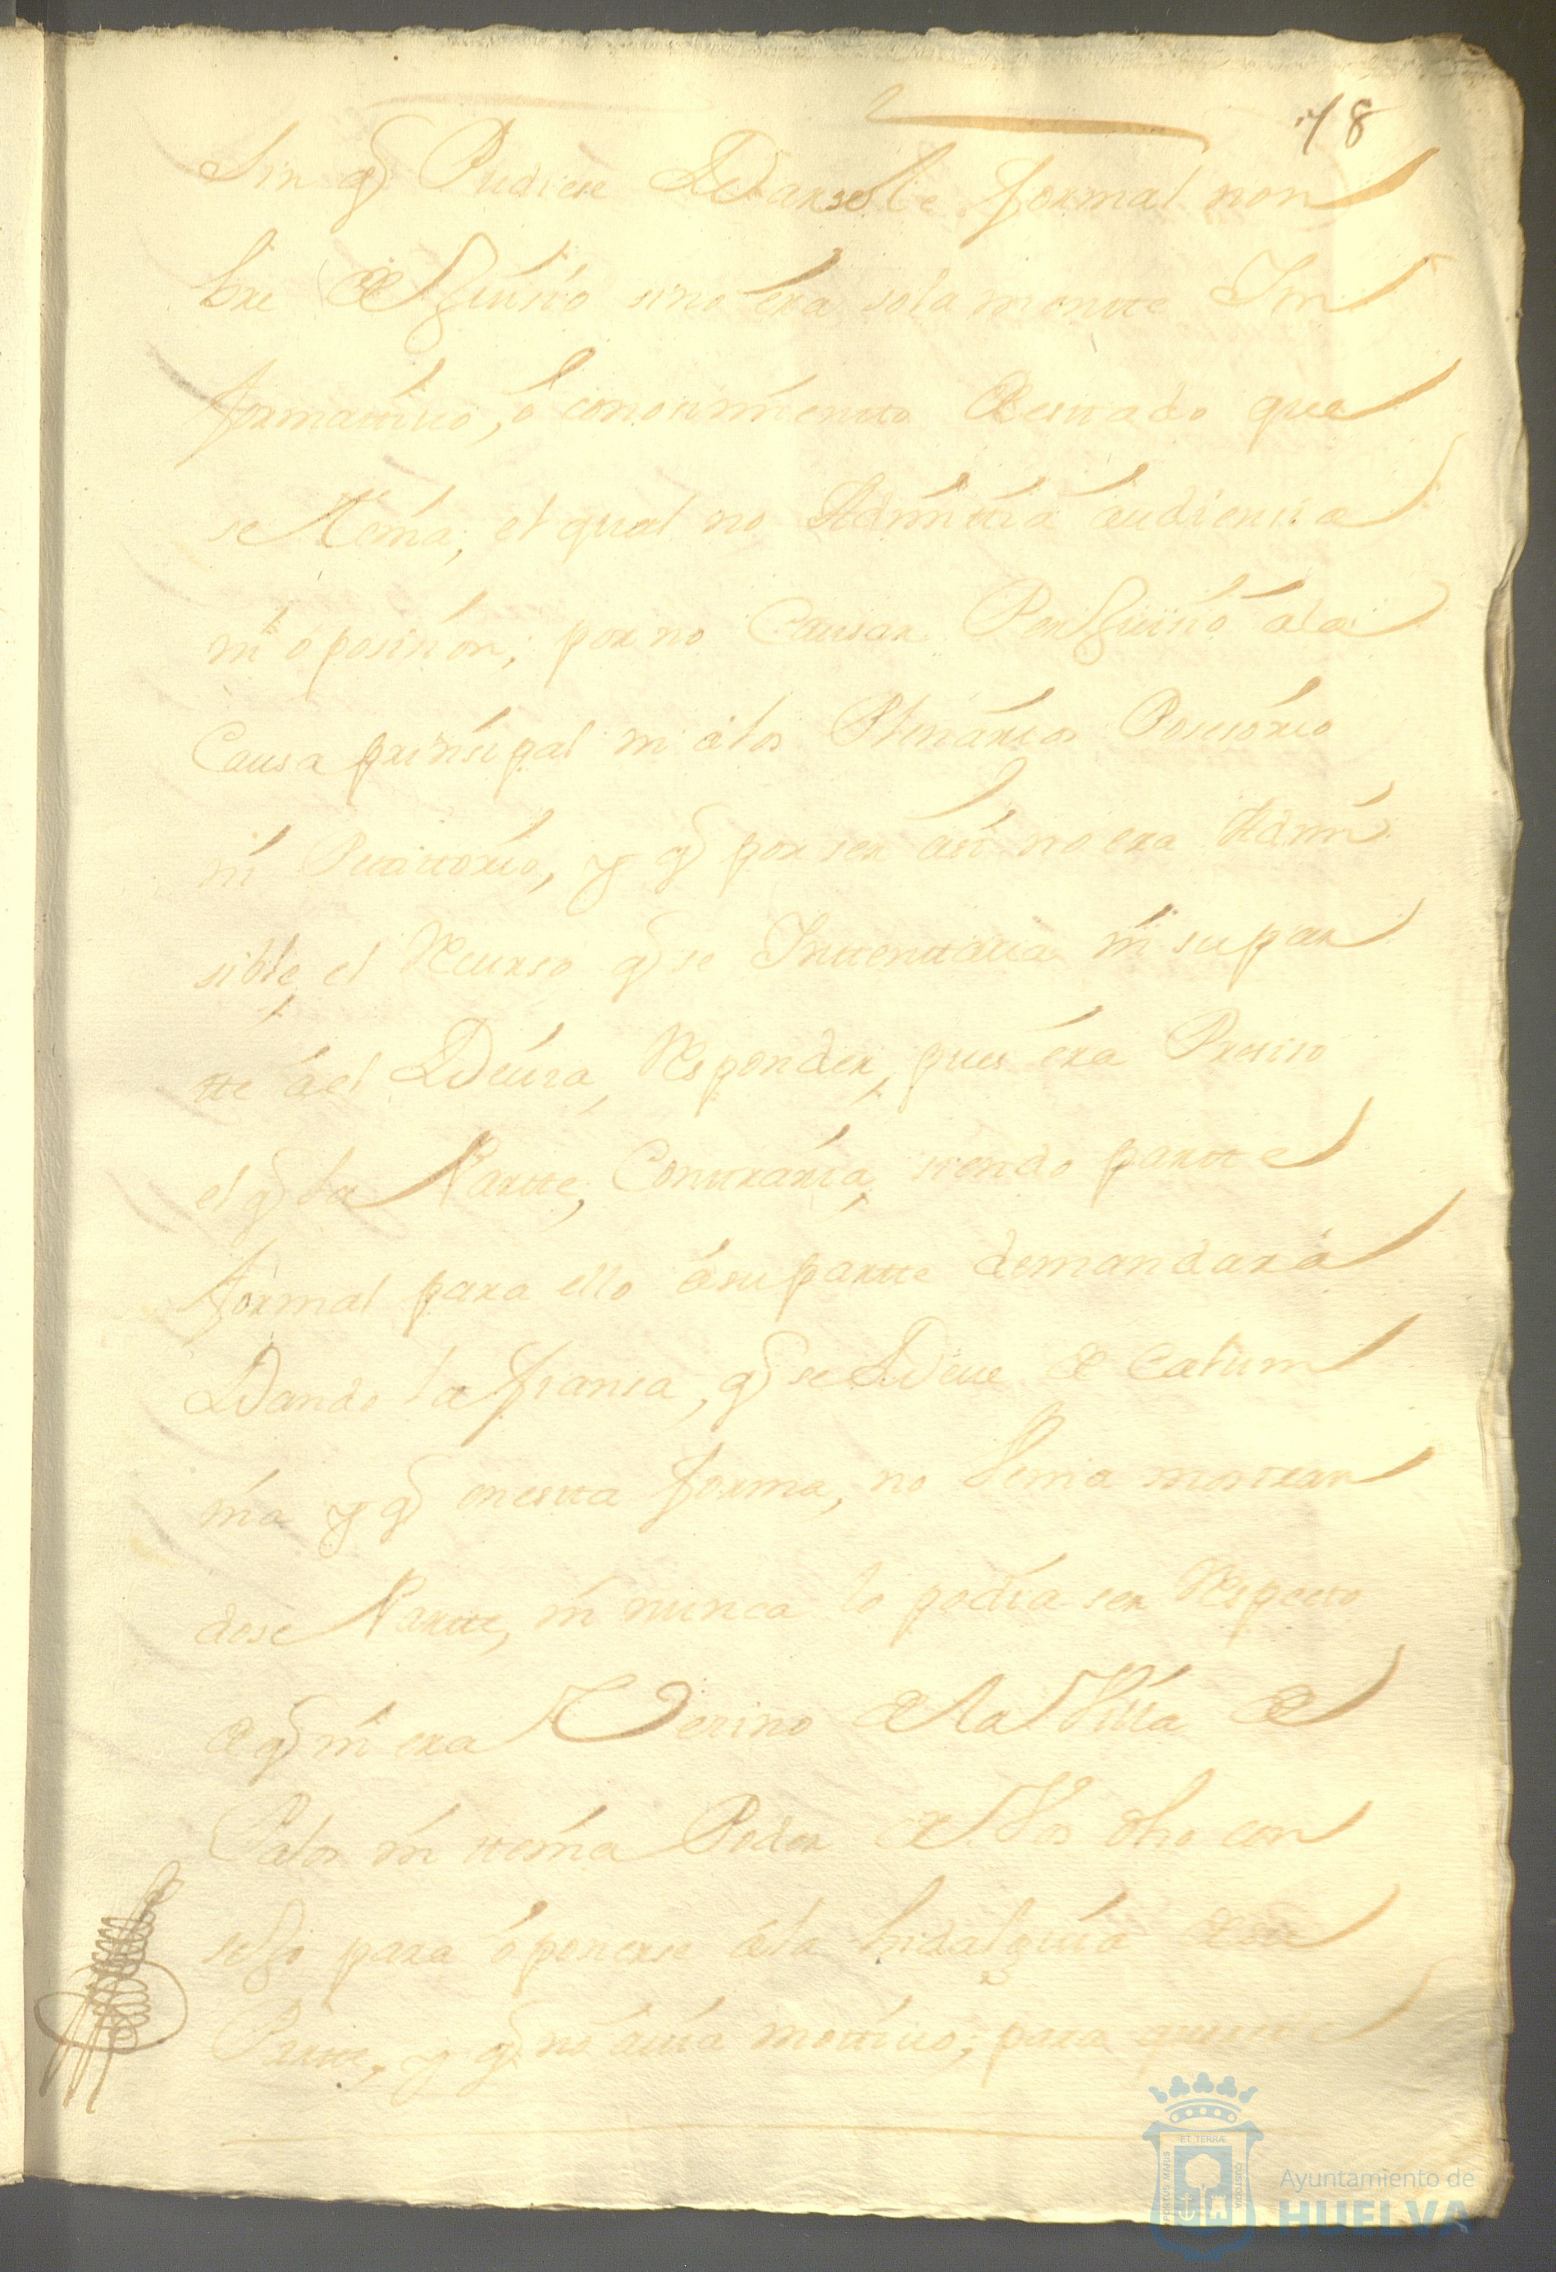 18
Sin q̃ Pudiese Darsele formal nom
bre de Juicio sino era solamentte In
formattivo, ó conocimientto de estado que
se thenia, el qual no Admittia audiencia
ni oposicion; por no Causar Perjuicio ala
Causa prinsipal ni alos Plenarios Posesorio
ni Petittorio, y q̃ por ser asi no era Admi
sible el Recurso q̃ se Inttenttava ni su par
tte á el Devia, Responder, pues éra Presiso
el q̃ la Partte, Conttraria, siendo partte
formal para ello ásu partte demandara
Dando la fiansa, q̃ se Deve de calum
nia y q̃ en estta forma, no Venia mostran
dose Partte, ni nunca lo podia ser Respecto
de q̃ ni era Vecino de la Villa de
Palos ni ttenia Poder de Vos dho con
sejo para óponerse ála hidalguia de su
Partte, y q̃ no avia mottivo, para
ET TERRÆ
PORTUS MARIS
CUSTODIA
Ayuntamiento de
HUELVA